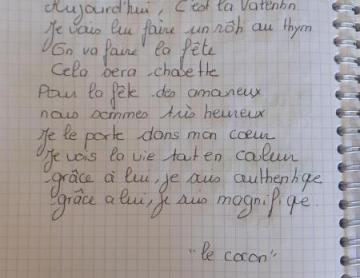 Aujourd'hui, C'est la Valentin
Je vais lui faire un rôti au thym
On va faire la fête
Cela sera chouette
Pour la fête des amoureux
nous sommes très heureux
Je le porte dans mon cœur
Je vois la vie tout en couleur
grâce à lui, je suis authentique
grâce a lui, je suis magnifique.
"le cocon"